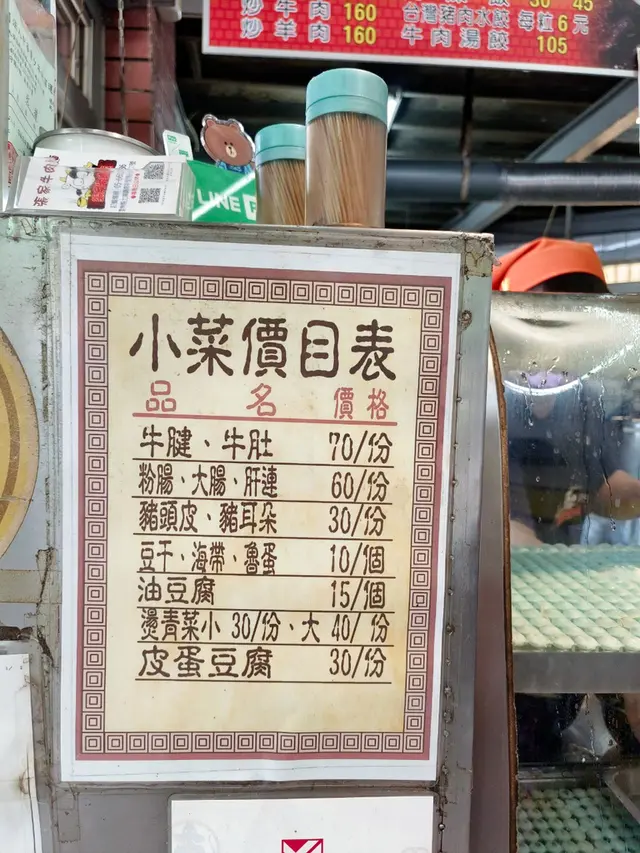 炒牛肉 160 台灣豬肉水餃 每粒6元
炒羊肉 160 牛肉湯餃 105
LINE
小菜價目表
品名 價格
牛腱、牛肚 70/份
粉腸、大腸、肝連 60/份
豬頭皮、豬耳朵 30/份
豆干、海帶、魯蛋 10/個
油豆腐 15/個
燙青菜小 30/份、大 40/份
皮蛋豆腐 30/份